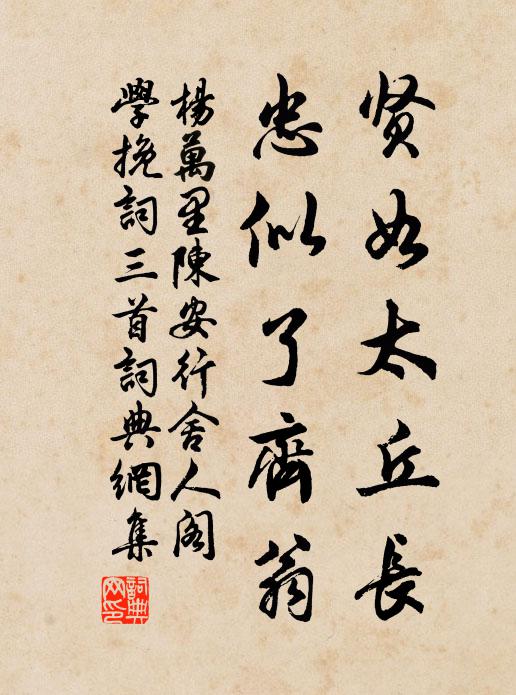 贤如太丘長
忠似了齋翁
楊萬里陳安行舍人閣
學挽詞三首詞典網集
詞典網印